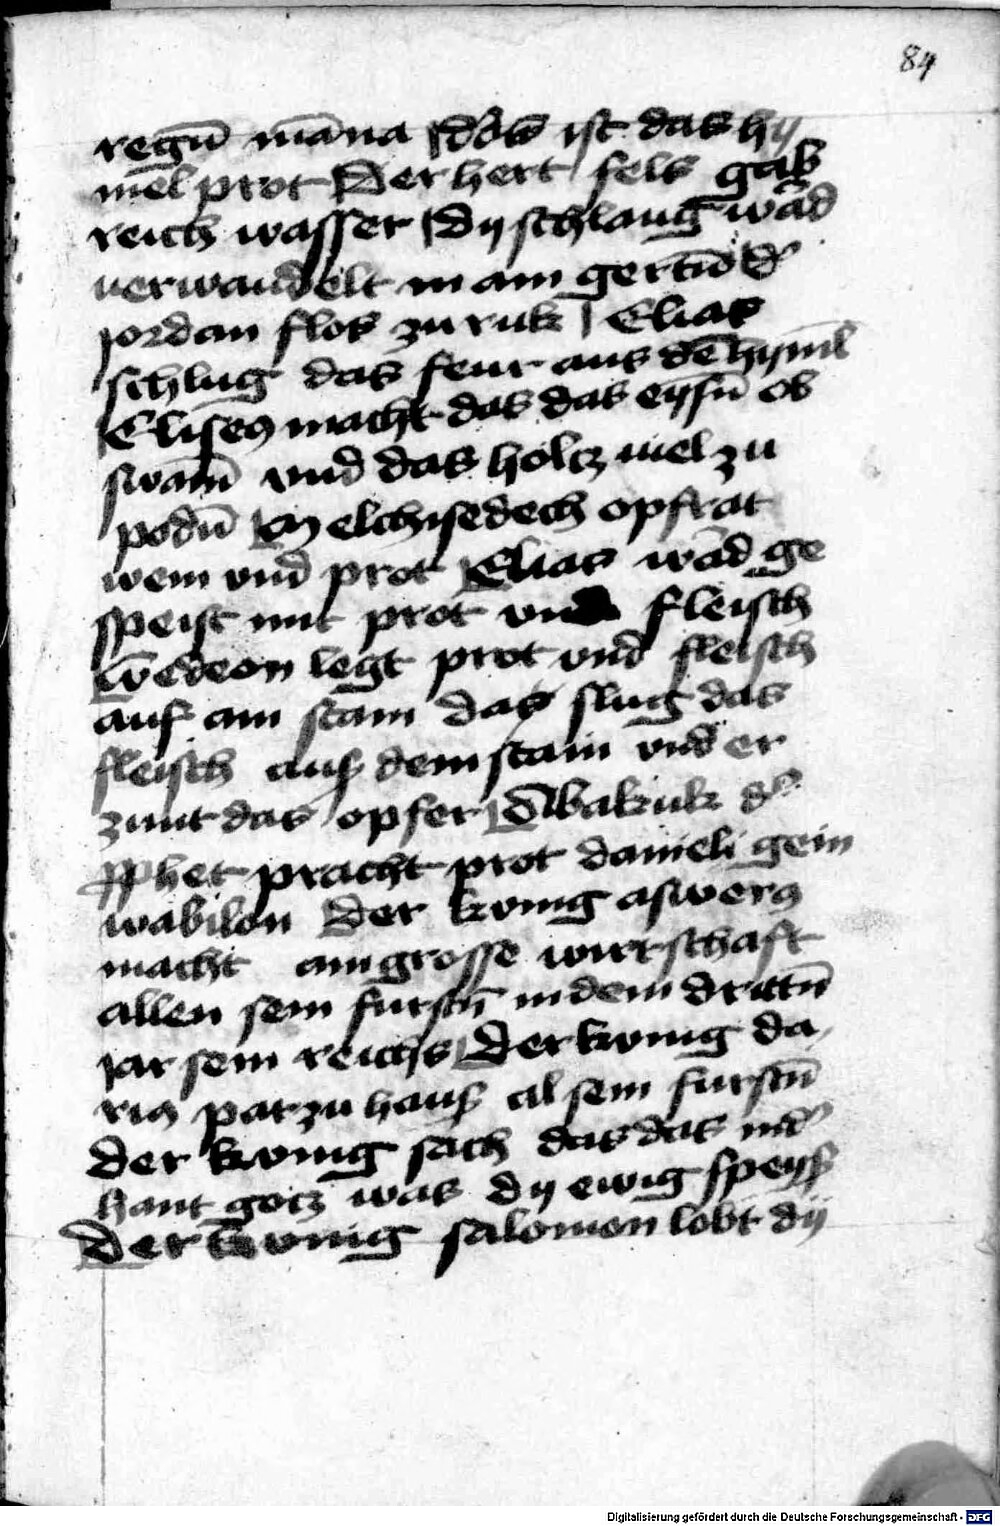 84
regū māna Das ist das hy
mēl prot Der hert fels gab
reich wasser Dy schlang ward
uerwandelt in ain gertū Der
jordan flos zu ruk Elias
schlug das feur aus dē hyml
Eliseus macht das das eysn̄ ob
swam̄ vnd das holtz viel zu
podn̄ Melchisedech opfrat
wein vnd prot Elias ward ge
speist mit prot vnd fleisch
Gedeon legt prot vnd fleisch
auf ain stain das slug das
fleisch auß dem stain vnd er
zunt das opfer Abakuk der
pphet pracht prot danieli gein
wabilon Der kunig aswerus
macht ain grosse wirtschaft
allen sein furstn̄ in dem drittn̄
jar sein reichs Der kunig da
rius pat zu hauß al sein furstn̄
der kunig sach das das in der
hant gotz was dy ewig speyß
Der kunig salomon lobt dy
Digitalisierung gefördert durch die Deutsche Forschungsgemeinschaft - DFG